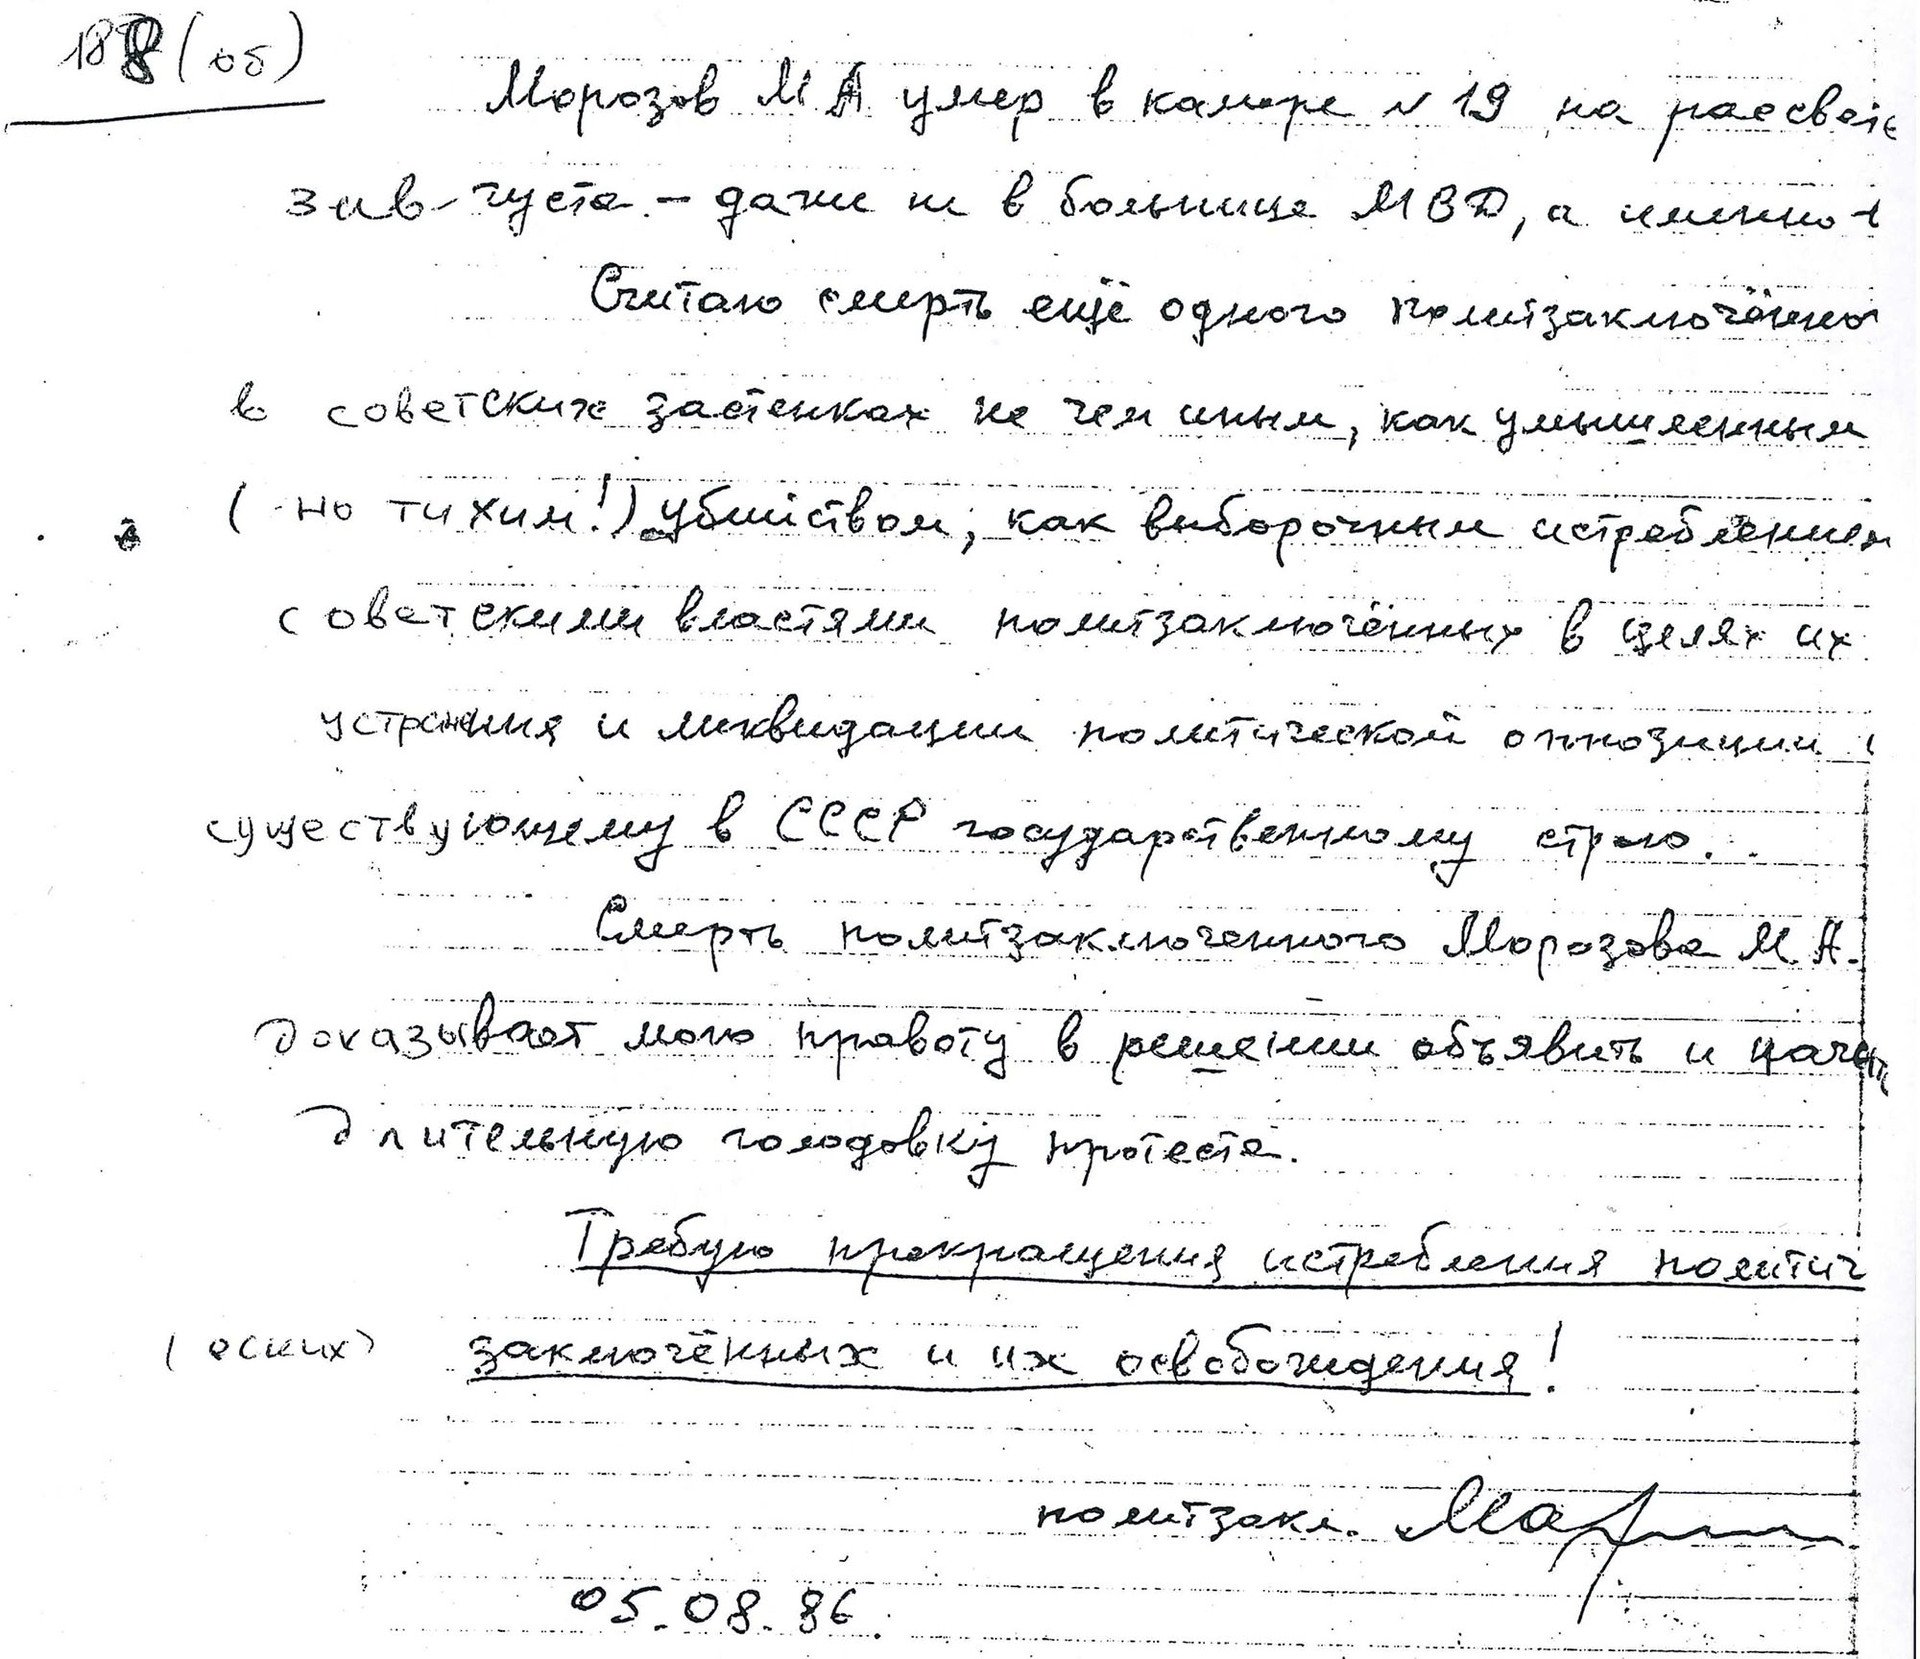 188 (об)
Морозов М А умер в камере N 19 на рассвете
3 ав-густа - даже не в больнице МВД, а именно
Считаю смерть ещё одного политзаключённо
в советских застенках не чем иным, как умышленным
( но тихим!) убийством, как выборочным истреблением
советскими властями политзаключённых в целях их
устранения и ликвидации политической оппозиции
существующему в СССР государственному строю.
Смерть политзаключенного Морозова М.А.
доказывает мою правоту в решении объявить и начать
длительную голодовку протеста.
Требую прекращения истребления политич
(еских) заключённых и их освобождения!
политзакл.
05.08.86.